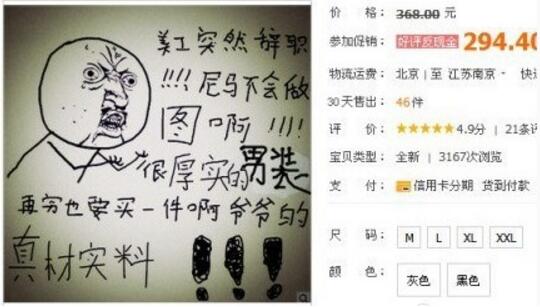 美工突然辞职
!!!尼马不会做
图啊!!!!
很厚实的男装
再穷也要买一件啊爷爷的
真材实料!!!
价 格: 368.00 元
参加促销: 好评反现金 294.40
物流运费: 北京 | 至 江苏南京 - 快
30天售出: 46件
评 价: 4.9分 | 21条
宝贝类型: 全新 | 3167次浏览
支 付: 信用卡分期 货到付款
尺 码: M L XL XXL
颜 色: 灰色 黑色